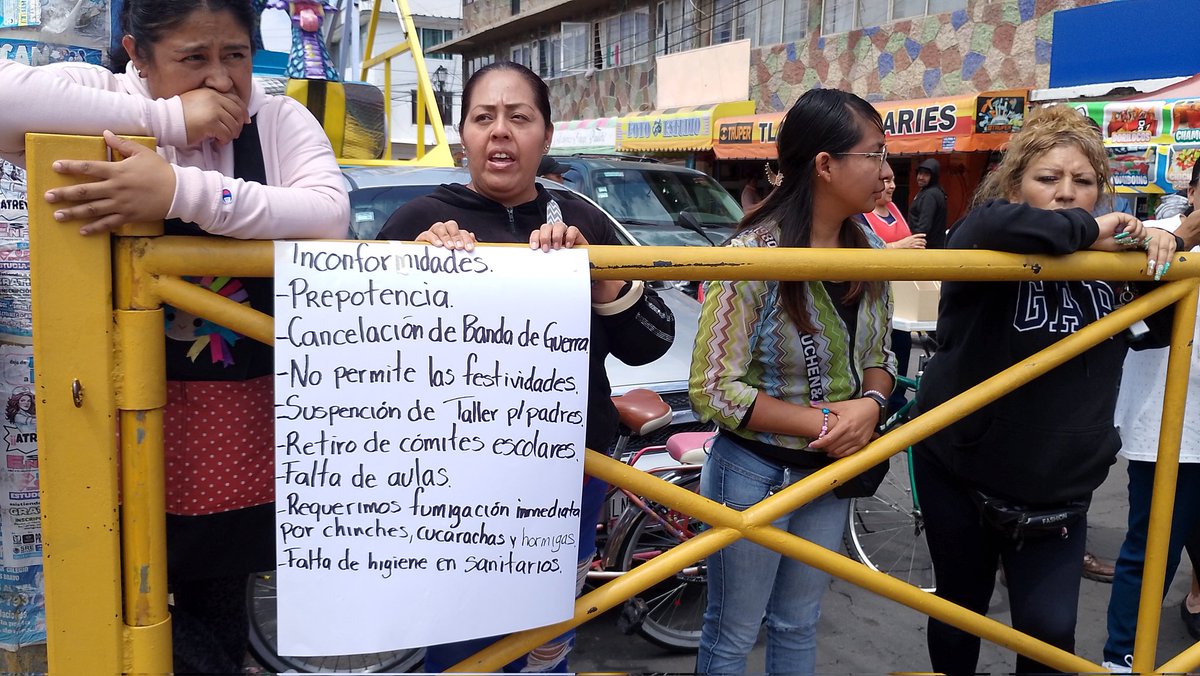 Inconformidades.
-Prepotencia.
-Cancelación de Banda de Guerra
-No permite las festividades.
-Suspención de Taller p/padres.
-Retiro de cómites escolares.
-Falta de aulas.
-Requerimos fumigación inmediata
por chinches, cucarachas y hormigas.
-Falta de higiene en sanitarios.
FOTO ESTUDIO
TRUPER
ARIES
UCHEN
GAP
FASHION
ESTUDIA